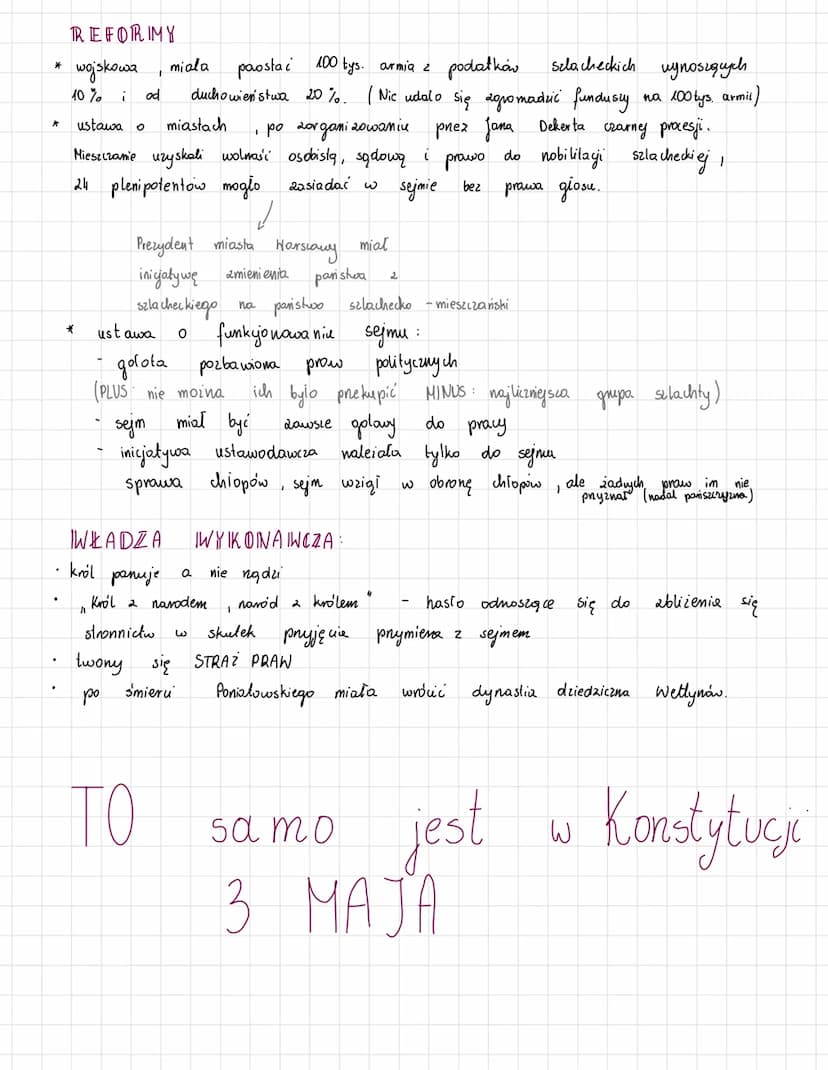 REFORMY
* wojskowa, miała paostać 100 tys. armia z podatków szlacheckich wynoszących
10% i od duchowieństwa 20%. (Nie udało się zgromadzić funduszy na 100 tys. armii)
* ustawa o miastach, po zorganizowaniu przez Jana Dekerta czarnej procesji.
Mieszczanie uzyskali wolność osobistą, sądową i prawo do nobilitacji szlacheckiej,
24 plenipotentów mogło zasiadać w sejmie bez prawa głosu.
Prezydent miasta Warszawy miał
inicjatywę zmienienia państwa z
szlacheckiego na państwo szlachecko - mieszczański
* ustawa o funkcjonowaniu sejmu:
- gołota pozbawiona praw politycznych
(PLUS: nie można ich było przekupić MINUS: najliczniejsza grupa szlachty)
- sejm miał być zawsze gotowy do pracy
- inicjatywa ustawodawcza należała tylko do sejmu
sprawa chłopów, sejm wziął w obronę chłopów, ale żadnych praw im nie
przyznał (nadal pańszczyzna)
WŁADZA WYKONAWCZA:
· król panuje a nie rządzi
· „Król z narodem, naród z królem" - hasło odnoszące się do zbliżenia się
stronnictw w skutek przyjęcia przymierza z sejmem
· tworzy się STRAŻ PRAW
· po śmierci Poniatowskiego miała wrócić dynastia dziedziczna Wettynów.
TO samo jest w Konstytucji
3 MAJA